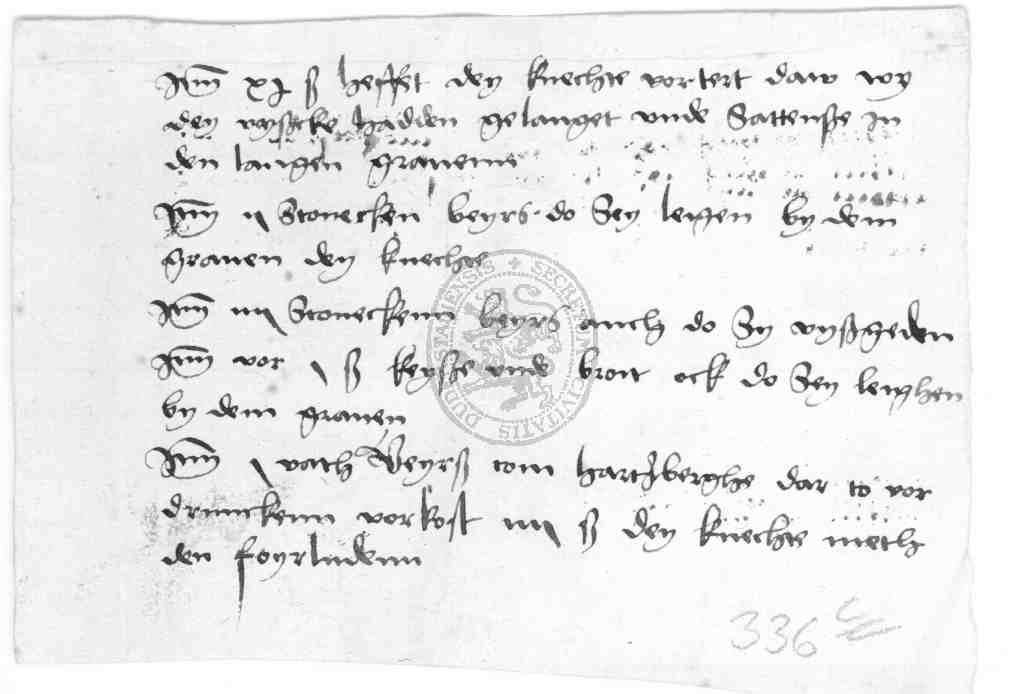 Item xj ß hefft dey knechte vortert daw wy
dey vyssche hadden gelanget unde Sattenße in
den langen graven
Item ij Stoveken beyrs do Sey leigen by dem
graven dey knechte
Item iiij Stoveckenn beyrs auch do Sy vyßgeden
Item vor j ß keyße unde broit ock do Sey leighen
by dem graven
Item j vath Beyrß tom hartzberghe dar to vor
drunckenn vorkost iiij ß dey knechte meth
den foyrludenn
336
SECRETUM CIVITATIS DUDERSTATENSIS